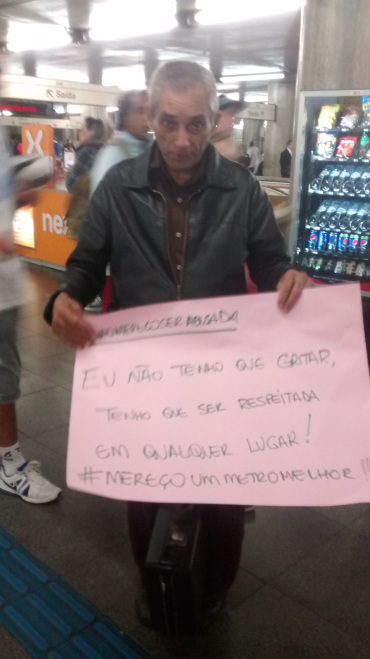 Saída
X
ne
EU NÃO TENHO QUE GRITAR,
TENHO QUE SER RESPEITADA
EM QUALQUER LUGAR!
#MEREÇO UM METRO MELHOR!!!